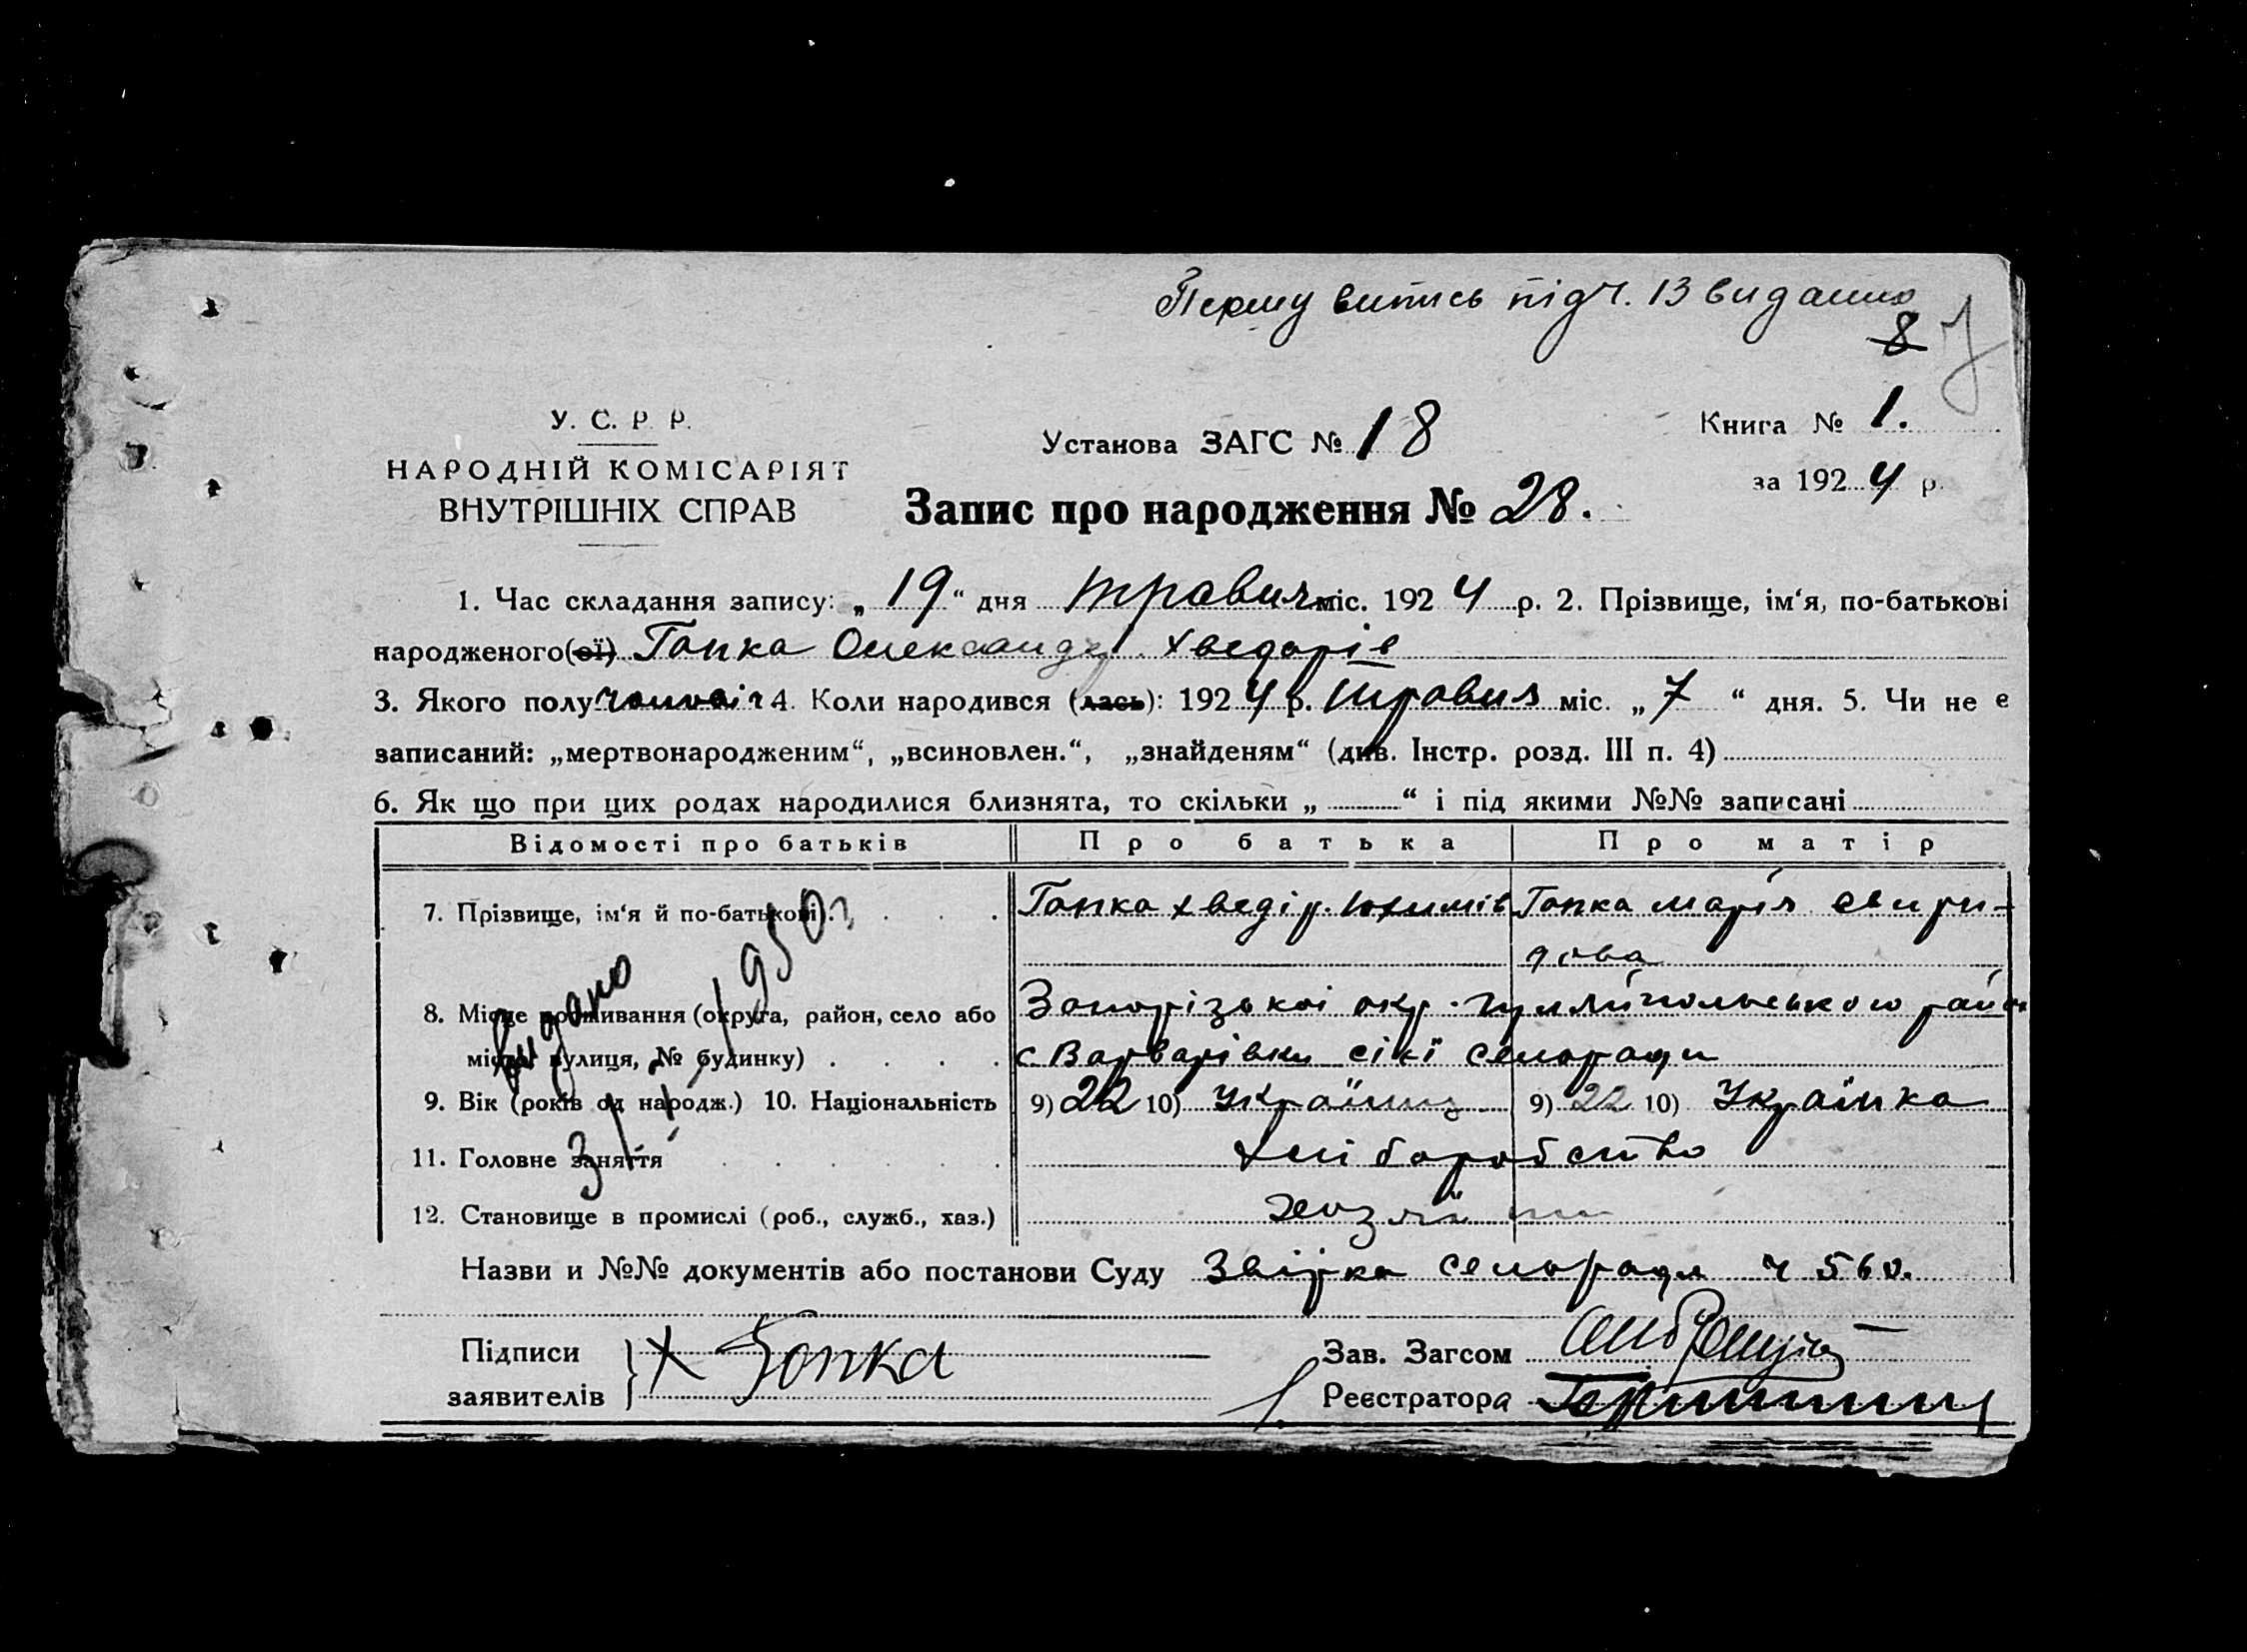 Першу випись під ч. 13 видано
8 7
У. С. Р. Р.
НАРОДНІЙ КОМІСАРІЯТ
ВНУТРІШНІХ СПРАВ
Установа ЗАГС № 18
Книга № 1.
за 1924 р.
Запис про народження № 28.
1. Час складання запису: „ 19 “ дня травня міс. 1924 р. 2. Прізвище, ім‘я, по-батькові
народженого(ої) Гопка Олександр Хведорів
3. Якого полу чоловіч 4. Коли народився (лась): 1924 р. травня міс. „ 7 “ дня. 5. Чи не є
записаний: „мертвонародженим“, „всиновлен.“, „знайденям“ (див. Інстр. розд. III п. 4)
6. Як що при цих родах народилися близнята, то скільки „ “ і під якими №№ записані
Відомості про батьків Про батька Про матір
7. Прізвище, ім‘я й по-батькові) Гопка Хведір Юхимів Гопка Марія Свири-
дова
8. Місце проживання (округа, район, село або Запорізької окр. Гуляйпольського район
місто, вулиця, № будинку) с. Варварівки сієї селоради
9. Вік (років од народж.) 10. Національність 9) 22 10) Українц 9) 22 10) Українка
11. Головне заняття Хліборобство
12. Становище в промислі (роб., служб., хаз.) хозяї
Видано 3/І 1950 г
Назви и №№ документів або постанови Суду Звірка селоради ч 560.
Підписи
заявителів } Х Гопка
Зав. Загсом
Реєстратора